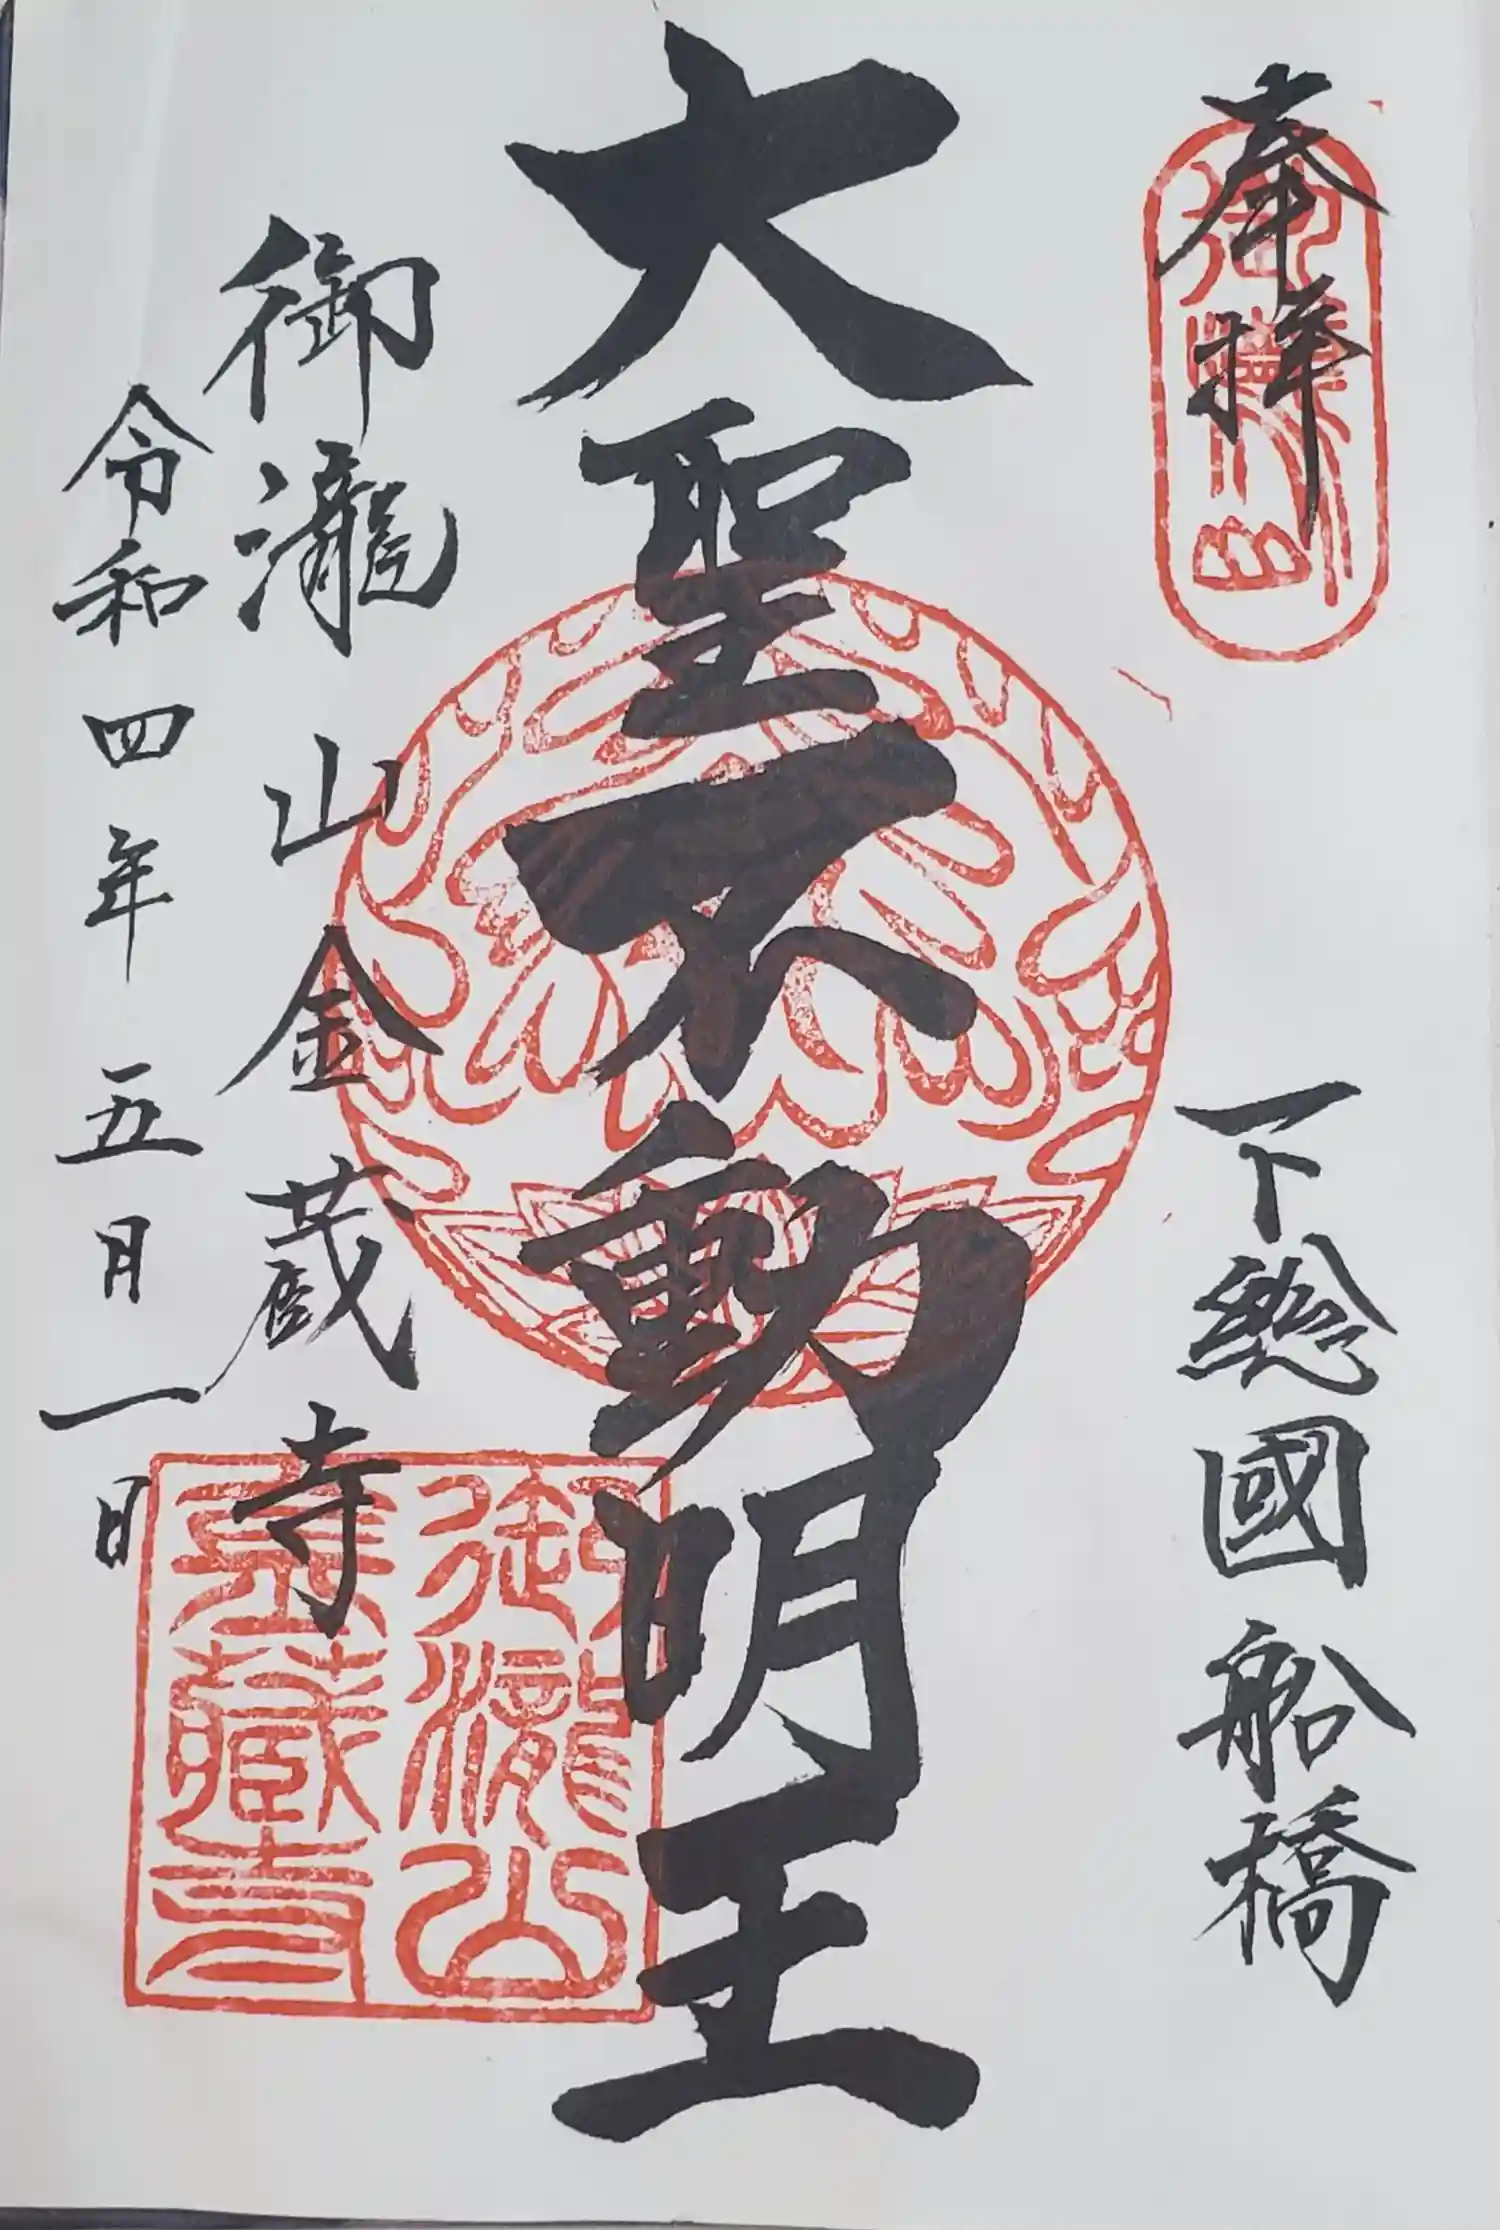 奉拝
下総國船橋
大聖不動明王
御瀧山金蔵寺
令和四年五月一日
御瀧山
金藏寺